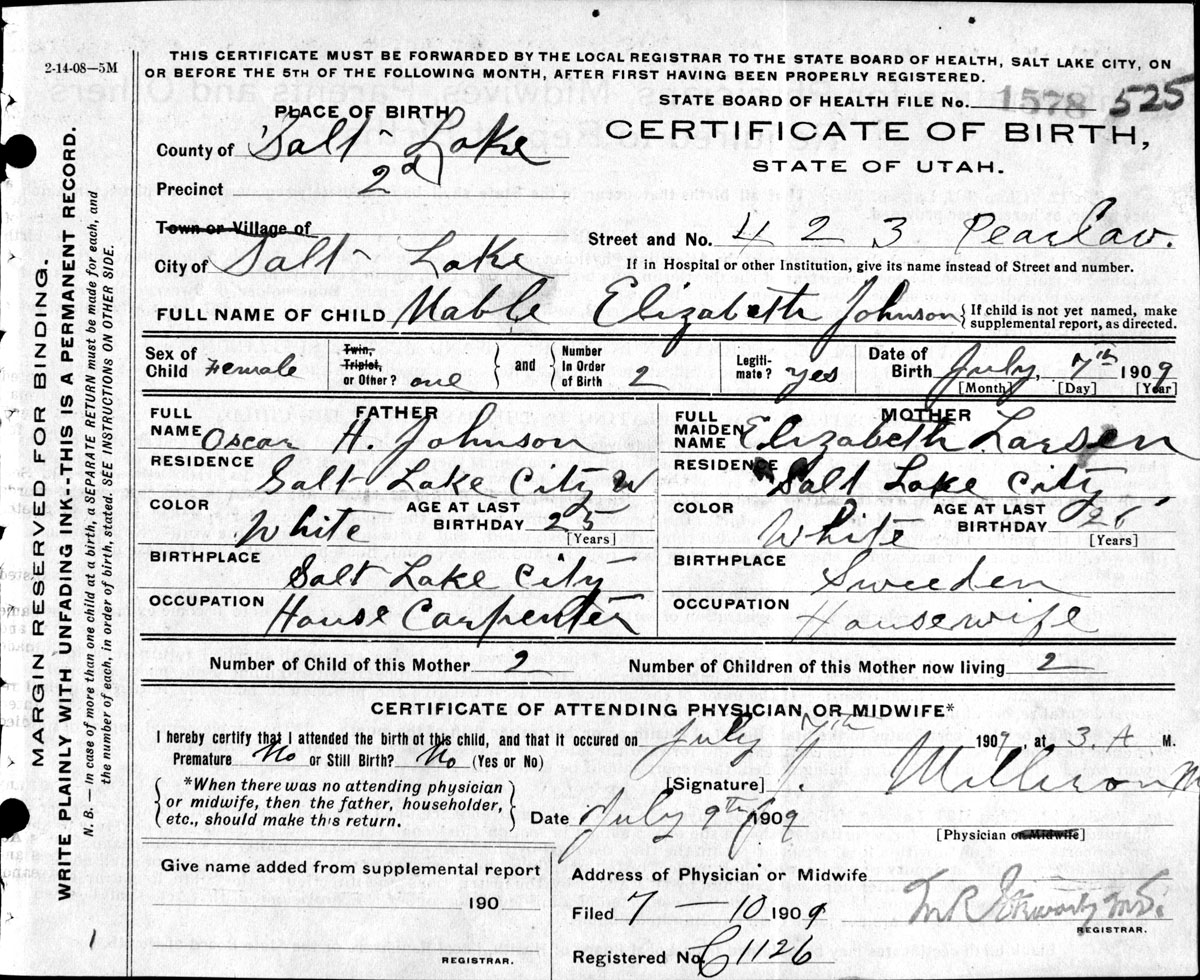 2-14-08—5M
THIS CERTIFICATE MUST BE FORWARDED BY THE LOCAL REGISTRAR TO THE STATE BOARD OF HEALTH, SALT LAKE CITY, ON
OR BEFORE THE 5TH OF THE FOLLOWING MONTH, AFTER FIRST HAVING BEEN PROPERLY REGISTERED.
STATE BOARD OF HEALTH FILE No. 1578 525
PLACE OF BIRTH
CERTIFICATE OF BIRTH,
STATE OF UTAH.
County of Salt Lake
Precinct 2d
Town or Village of
Street and No. 423 Pearl av.
City of Salt Lake
If in Hospital or other Institution, give its name instead of Street and number.
FULL NAME OF CHILD Mable Elizabeth Johnson { If child is not yet named, make supplemental report, as directed.
Sex of Child Female Twin, Triplet, or Other? one } and { Number In Order of Birth 2 Legiti-mate? yes Date of Birth July 7th 1909
[Month] [Day] [Year]
FATHER
FULL NAME Oscar H. Johnson
RESIDENCE Salt Lake City U
COLOR White AGE AT LAST BIRTHDAY 25 [Years]
BIRTHPLACE Salt Lake City
OCCUPATION House Carpenter
MOTHER
FULL MAIDEN NAME Elizabeth Larsen
RESIDENCE Salt Lake City
COLOR White AGE AT LAST BIRTHDAY [Years]
BIRTHPLACE Sweeden
OCCUPATION Housewife
Number of Child of this Mother 2 Number of Children of this Mother now living 2
CERTIFICATE OF ATTENDING PHYSICIAN OR MIDWIFE*
I hereby certify that I attended the birth at this child, and that it occured on July 7th 1909, at 3. A M.
Premature No or Still Birth? No (Yes or No)
*When there was no attending physician
or midwife, then the father, householder,
etc., should make this return.
[Signature]
Date July 9th 1909
[Physician or Midwife]
Give name added from supplemental report
190
REGISTRAR.
Address of Physician or Midwife
Filed 7—10 1909
REGISTRAR.
Registered No. C1126
MARGIN RESERVED FOR BINDING.
WRITE PLAINLY WITH UNFADING INK--THIS IS A PERMANENT RECORD.
N. B.—In case of more than one child at a birth, a SEPARATE RETURN must be made for each, and
the number of each, in order of birth, stated. SEE INSTRUCTIONS ON OTHER SIDE.